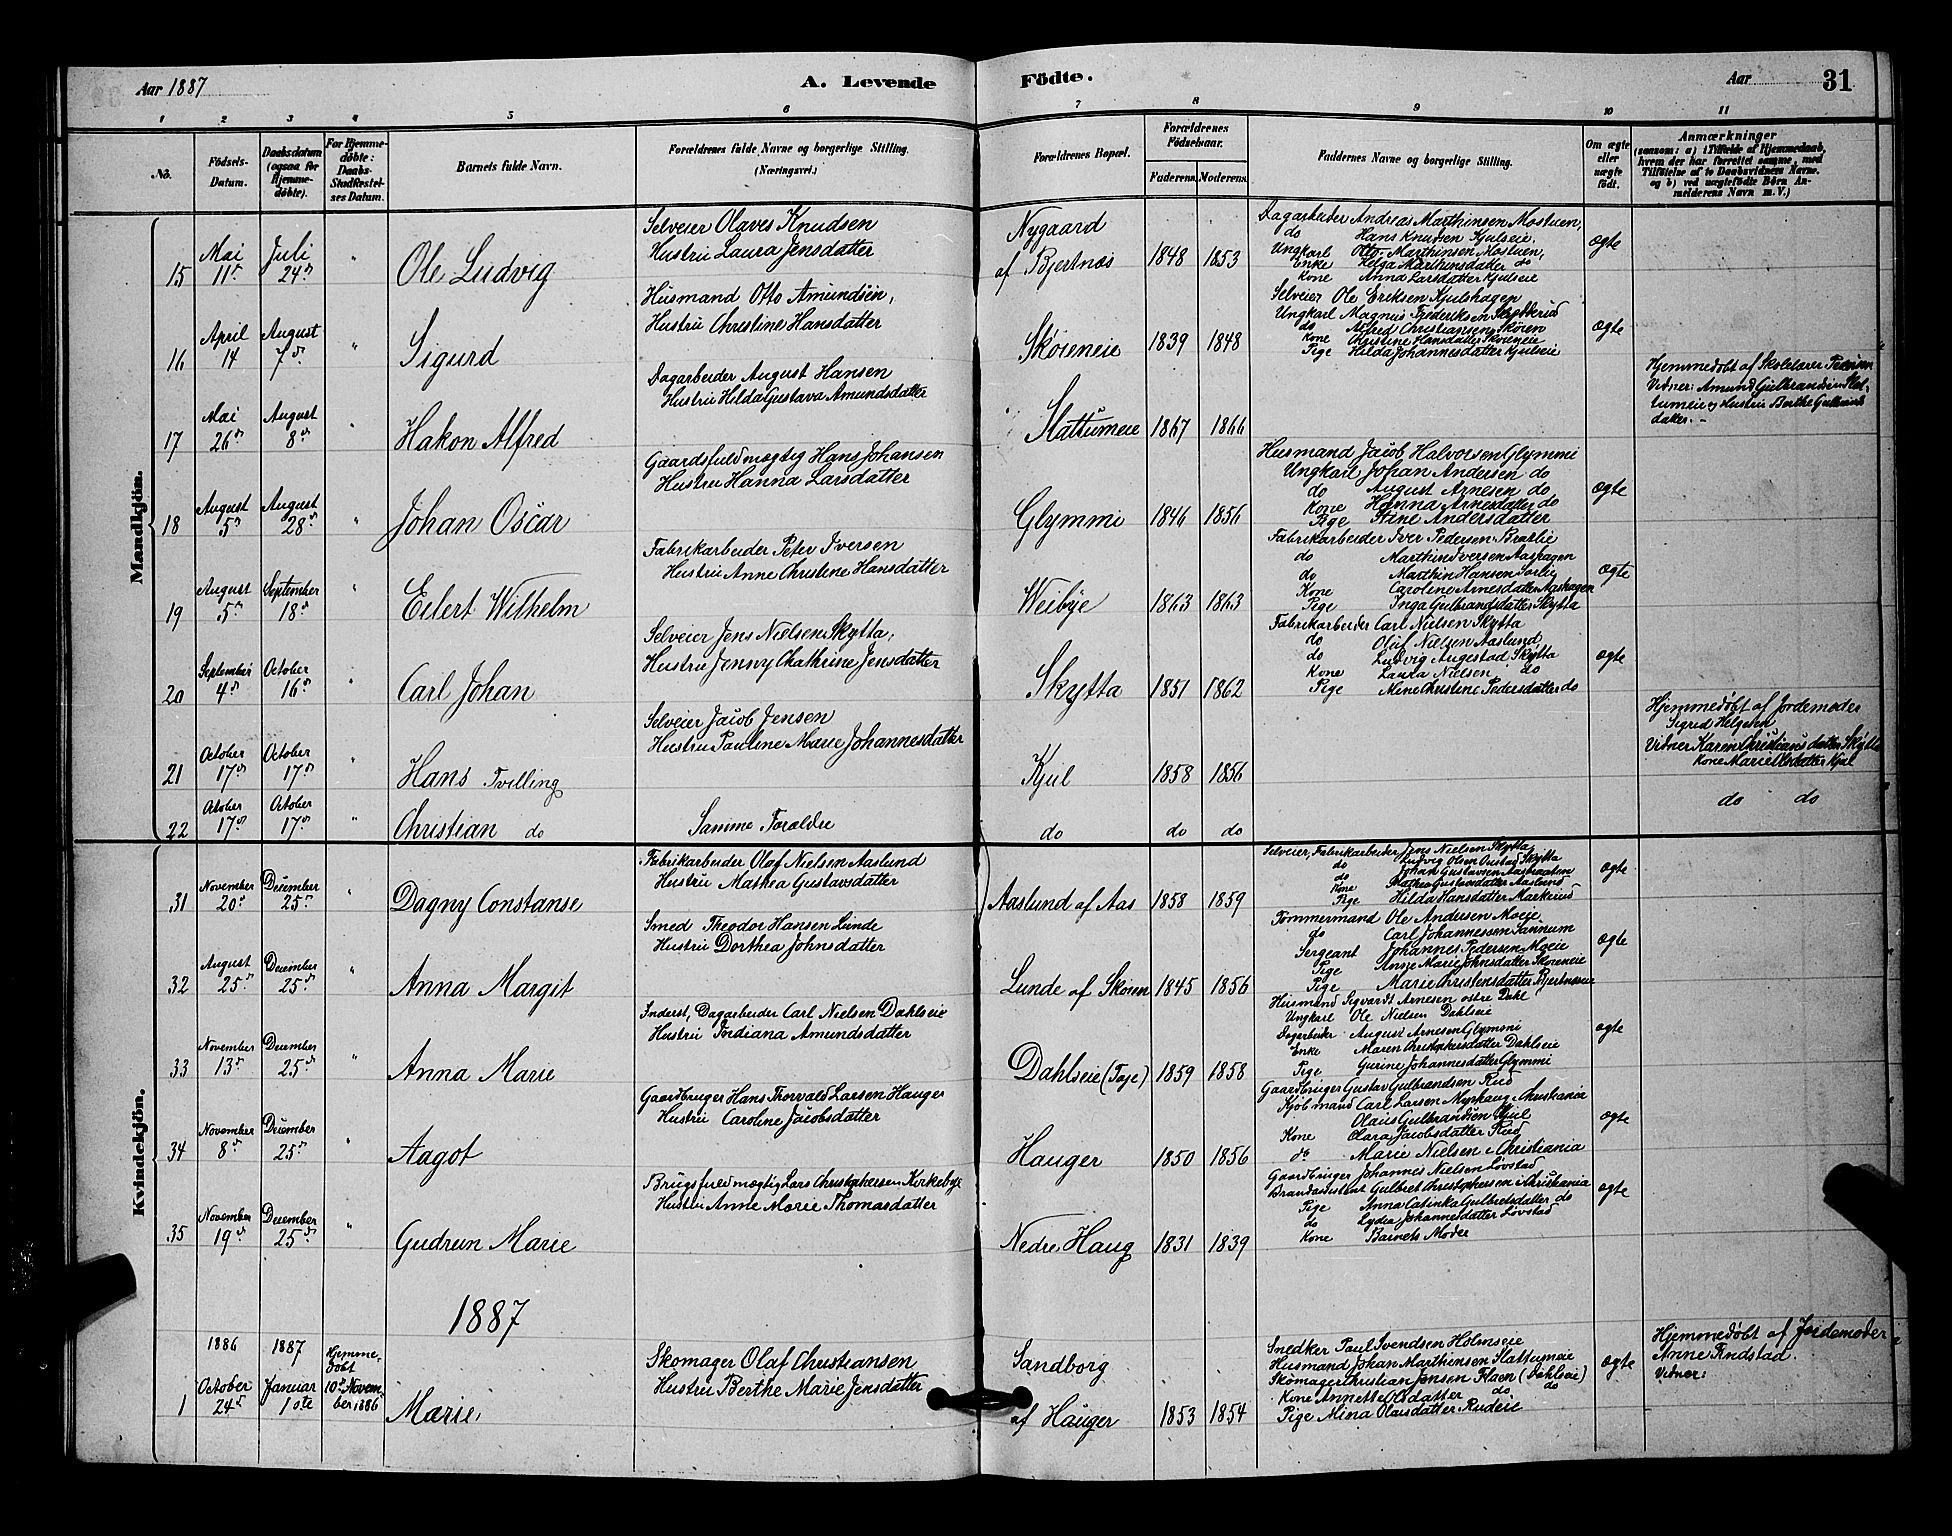 Aar 1887
A. Levende
Födte.
Aar
31
1 2 3 4 5 6 7 8 9 10 11
No.
Födsels-
Datum.
Daabsdatum
(ogsaa for
Hjemme-
döbte).
For Hjemme-
döbte:
Daabs-
Stadfæstel-
ses Datum.
Barnets fulde Navn.
Forældrenes fulde Navne og borgerlige Stilling.
(Næringsvei.)
Forældrenes Bopæl.
Forældrenes
Födselsaar.
Faderens.
Moderens.
Faddernes Navne og borgerlige Stilling.
Om ægte
eller
uægte
födt.
Anmærkninger
(saasom: a) i Tilfælde af Hjemmedaab,
hvem der har forrettet samme, med
Tilföielse af to Daabsvidners Navne.
og b) ved uægtefödte Börn An-
melderens Navn m. V.)
Mandkjön.
15
Mai
11te
Juli
24de
"
Ole Ludvig
Selveier Olaves Knudsen
Hustru Laura Jensdatter
Nygaard
af Bjertnæs
1848 1853
Dagarbeider Andreas Marthinsen Mostuen,
do Hans Knudsen Kjulseie,
Ungkarl Otto Marthinsen Mostuen,
Enke Helga Marthinsdatter do
Kone Anna Larsdatter Kjulseie
ægte
16
April
14
August
7de
"
Sigurd
Husmand Otto Amundsen,
Hustru Christine Hansdatter
Skøieneie
1839 1848
Selveier Ole Eriksen Kjulshagen
Ungkarl Magnus Frederiksen
do Alfred Christiansen Skøien
Kone Christine Hansdatter Skøieneie
Pige Hilda Johannesdatter Kjulseie
ægte
17
Mai
26de
August
8de
"
Hakon Alfred
Dagarbeider August Hansen
Hustru Hilda Gustava Amundsdatter
Slattumeie
1867 1866
Hjemmedøbt af Skolelærer
Vidner: Amund Gulbrandsen Slat-
tumeie og Hustru Berthe Gulbrands
datter. -
18
August
5te
August
28de
"
Johan Oscar
Gaardsfuldmægtig Hans Johansen
Hustru Hanna Larsdatter
Glymmi
1846 1856
Husmand Jacob Halvorsen Glymmi
Ungkarl Johan Andersen do
do August Arnesen do
Kone Hanna Arnesdatter do
Pige Stine Andersdatter
ægte
19
August
5te
September
18de
"
Eilert Wilhelm
Fabrikarbeider Peter Iversen
Hustru Anne Christine Hansdatter
Weibye
1863 1863
Fabrikarbeider Iver Pedersen
do Marthin Iversen Aashagen
do Marthin Hansen
Kone Caroline Arnesdatter Aashagen
Pige Inga Gulbrandsdatter Skytta
ægte
20
September
4de
October
16de
"
Carl Johan
Selveier Jens Nielsen Skytta,
Hustru Jenny Chathrine Jensdatter
Skytta
1851 1862
Fabrikarbeider Carl Nielsen Skytta
do Oluf Nielsen Aaslund
do Ludvig Augestad Skytta
Kone Laura Nielsen do
Pige Mine Christine Pedersdatter do
ægte
21
October
17de
October
17de
"
Hans Tvilling
Selveier Jacob Jensen
Hustru Pauline Marie Johannesdatter
Kjul
1858 1856
Hjemmedøbt af Jordemoder
Sigrid Helgesen
Vidner Karen Christiansdatter Skytta
Kone Marie Olsdatter Kjul
22
October
17de
October
17de
"
Christian do
Samme Forældre
do do do
do do
Kvindekjön.
31
November
20de
December
25de
"
Dagny Constanse
Fabrikarbeider Olaf Nielsen Aaslund
Hustru Mathea Gustavsdatter
Aaslund af Aas
1858 1859
Selveier, Fabrikarbeider Jens Nielsen Skytta,
do Ludvig Olsen Skytta
do Johan Gustavsen
Kone Mathea Gustavsdatter Aaslund
Pige Hilda Hansdatter Markerud
ægte
32
August
25de
December
25de
"
Anna Margit
Smed Theodor Hansen Lunde
Hustru Dorthea Johnsdatter
Lunde af Skøien
1845 1856
Tømmermand Ole Andersen Moeie
do Carl Johannessen Tannum
Sergeant Johannes Pedersen Moeie
Pige Anne Marie Johnsdatter Skøieneie
Pige Marie Christensdatter Bjertnæseie
ægte
33
November
13de
December
25de
"
Anna Marie
Inderst, Dagarbeider Carl Nielsen Dahlseie
Hustru Jordiana Amundsdatter
Dahlseie (Taje)
1859 1858
Husmand Sigvardt Arnesen østre Dahl
Ungkarl Ole Nielsen Dahlseie
Dagarbeider August Arnesen Glymmi
Enke Maren Christophersdatter Dahlseie
Pige Gurine Johannesdatter Glymmi
ægte
34
November
8de
December
25de
"
Aagot
Gaardbruger Hans Thorvald Larsen Hauger
Hustru Caroline Jacobsdatter
Hauger
1850 1856
Gaardbruger Gustav Gulbrandsen Rud
Kjøbmand Carl Larsen Nyhaug i Christiania
Olaus Gulbrandsen Kjul
Kone Clara Jacobsdatter Rud
do Marie Nielsen i Christiania
ægte
35
November
19de
December
25de
"
Gudrun Marie
Brugsfuldmægtig Lars Christophersen Kirkebye
Hustru Anne Marie Thomasdatter
Nedre Haug
1831 1839
Gaardbruger Johannes Nielsen Løvstad
Brandassistent Gulbret Christophersen i Christiania
Pige Anna Catinka Gulbretsdatter do
do Lydia Johannesdatter Løvstad
Kone Barnets Moder
ægte
1887
1
1886
October
24de
1887
Januar
1ste
Hjemme-
døbt
10de Novem-
ber 1886
Marie,
Skomager Olaf Christiansen
Hustru Berthe Marie Jensdatter
Sandborg
af Hauger
1853 1854
Snedker Paul Svendsen Holmseie
Husmand Johan Marthinsen Slattumeie
Skomager Christian Jensen Flaen (Dahlseie)
Kone Annette Olsdatter do do
Pige Mina Olausdatter Rudeie
ægte
Hjemmedøbt af Jordemoder
Anne Rudstad.
Vidner: